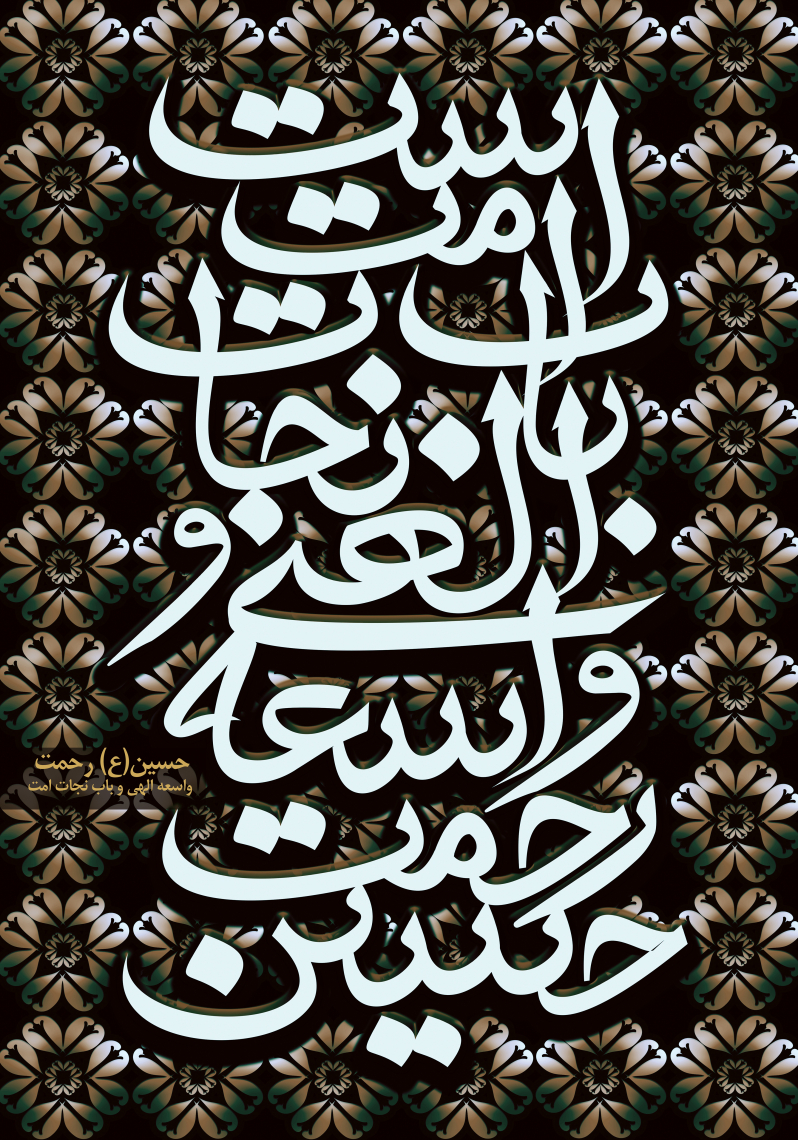 حسین
رحمت
واسعه
الهی و
باب نجات
امت
است
حسین(ع) رحمت
واسعه الهی و باب نجات امت